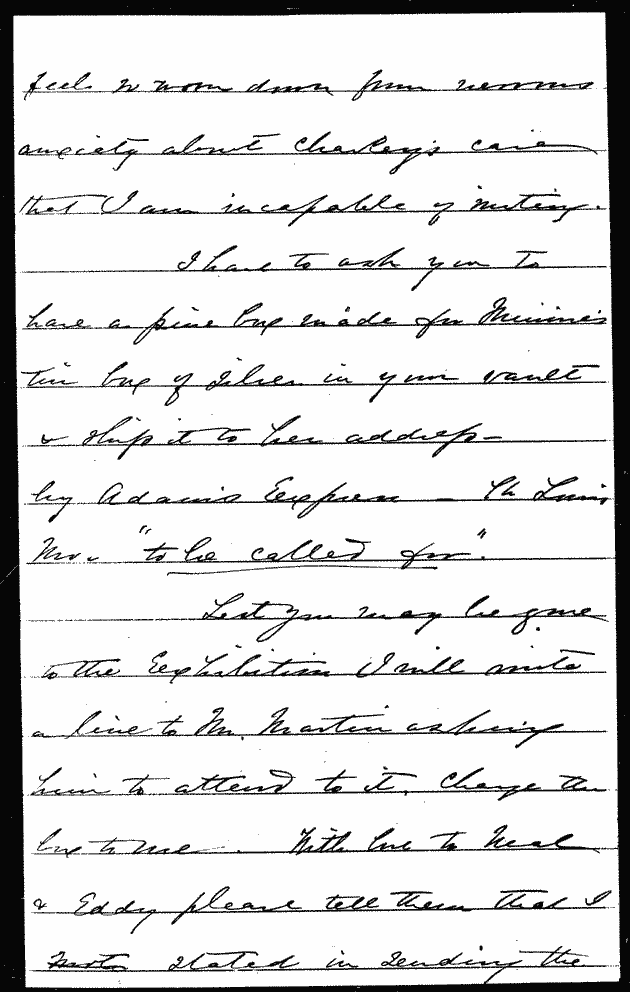 feel so worn down from nervous
anxiety about Charley's case
that I am incapable of writing.
I have to ask you to
have a pine box made for Minnie's
tin box of silver in your vault
& ship it to her address
by Adams Express — St Louis
Mo. "to be called for".
Lest you may be gone
to the Exhibition I will write
a line to Mr. Martin asking
him to attend to it. Charge the
box to me. With love to Neal
& Eddy please tell them that I
stated in sending the